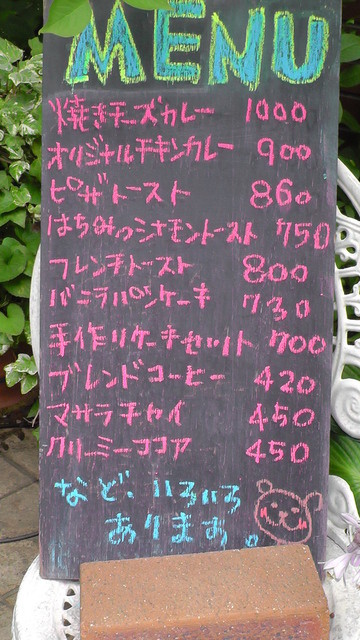 MENU
焼きチーズカレー 1000
オリジナルチキンカレー 900
ピザトースト 860
はちみつシナモントースト 750
フレンチトースト 800
バニラパンケーキ 730
手作りケーキセット 700
ブレンドコーヒー 420
マサラチャイ 450
クリーミーココア 450
など、いろいろ
あります。